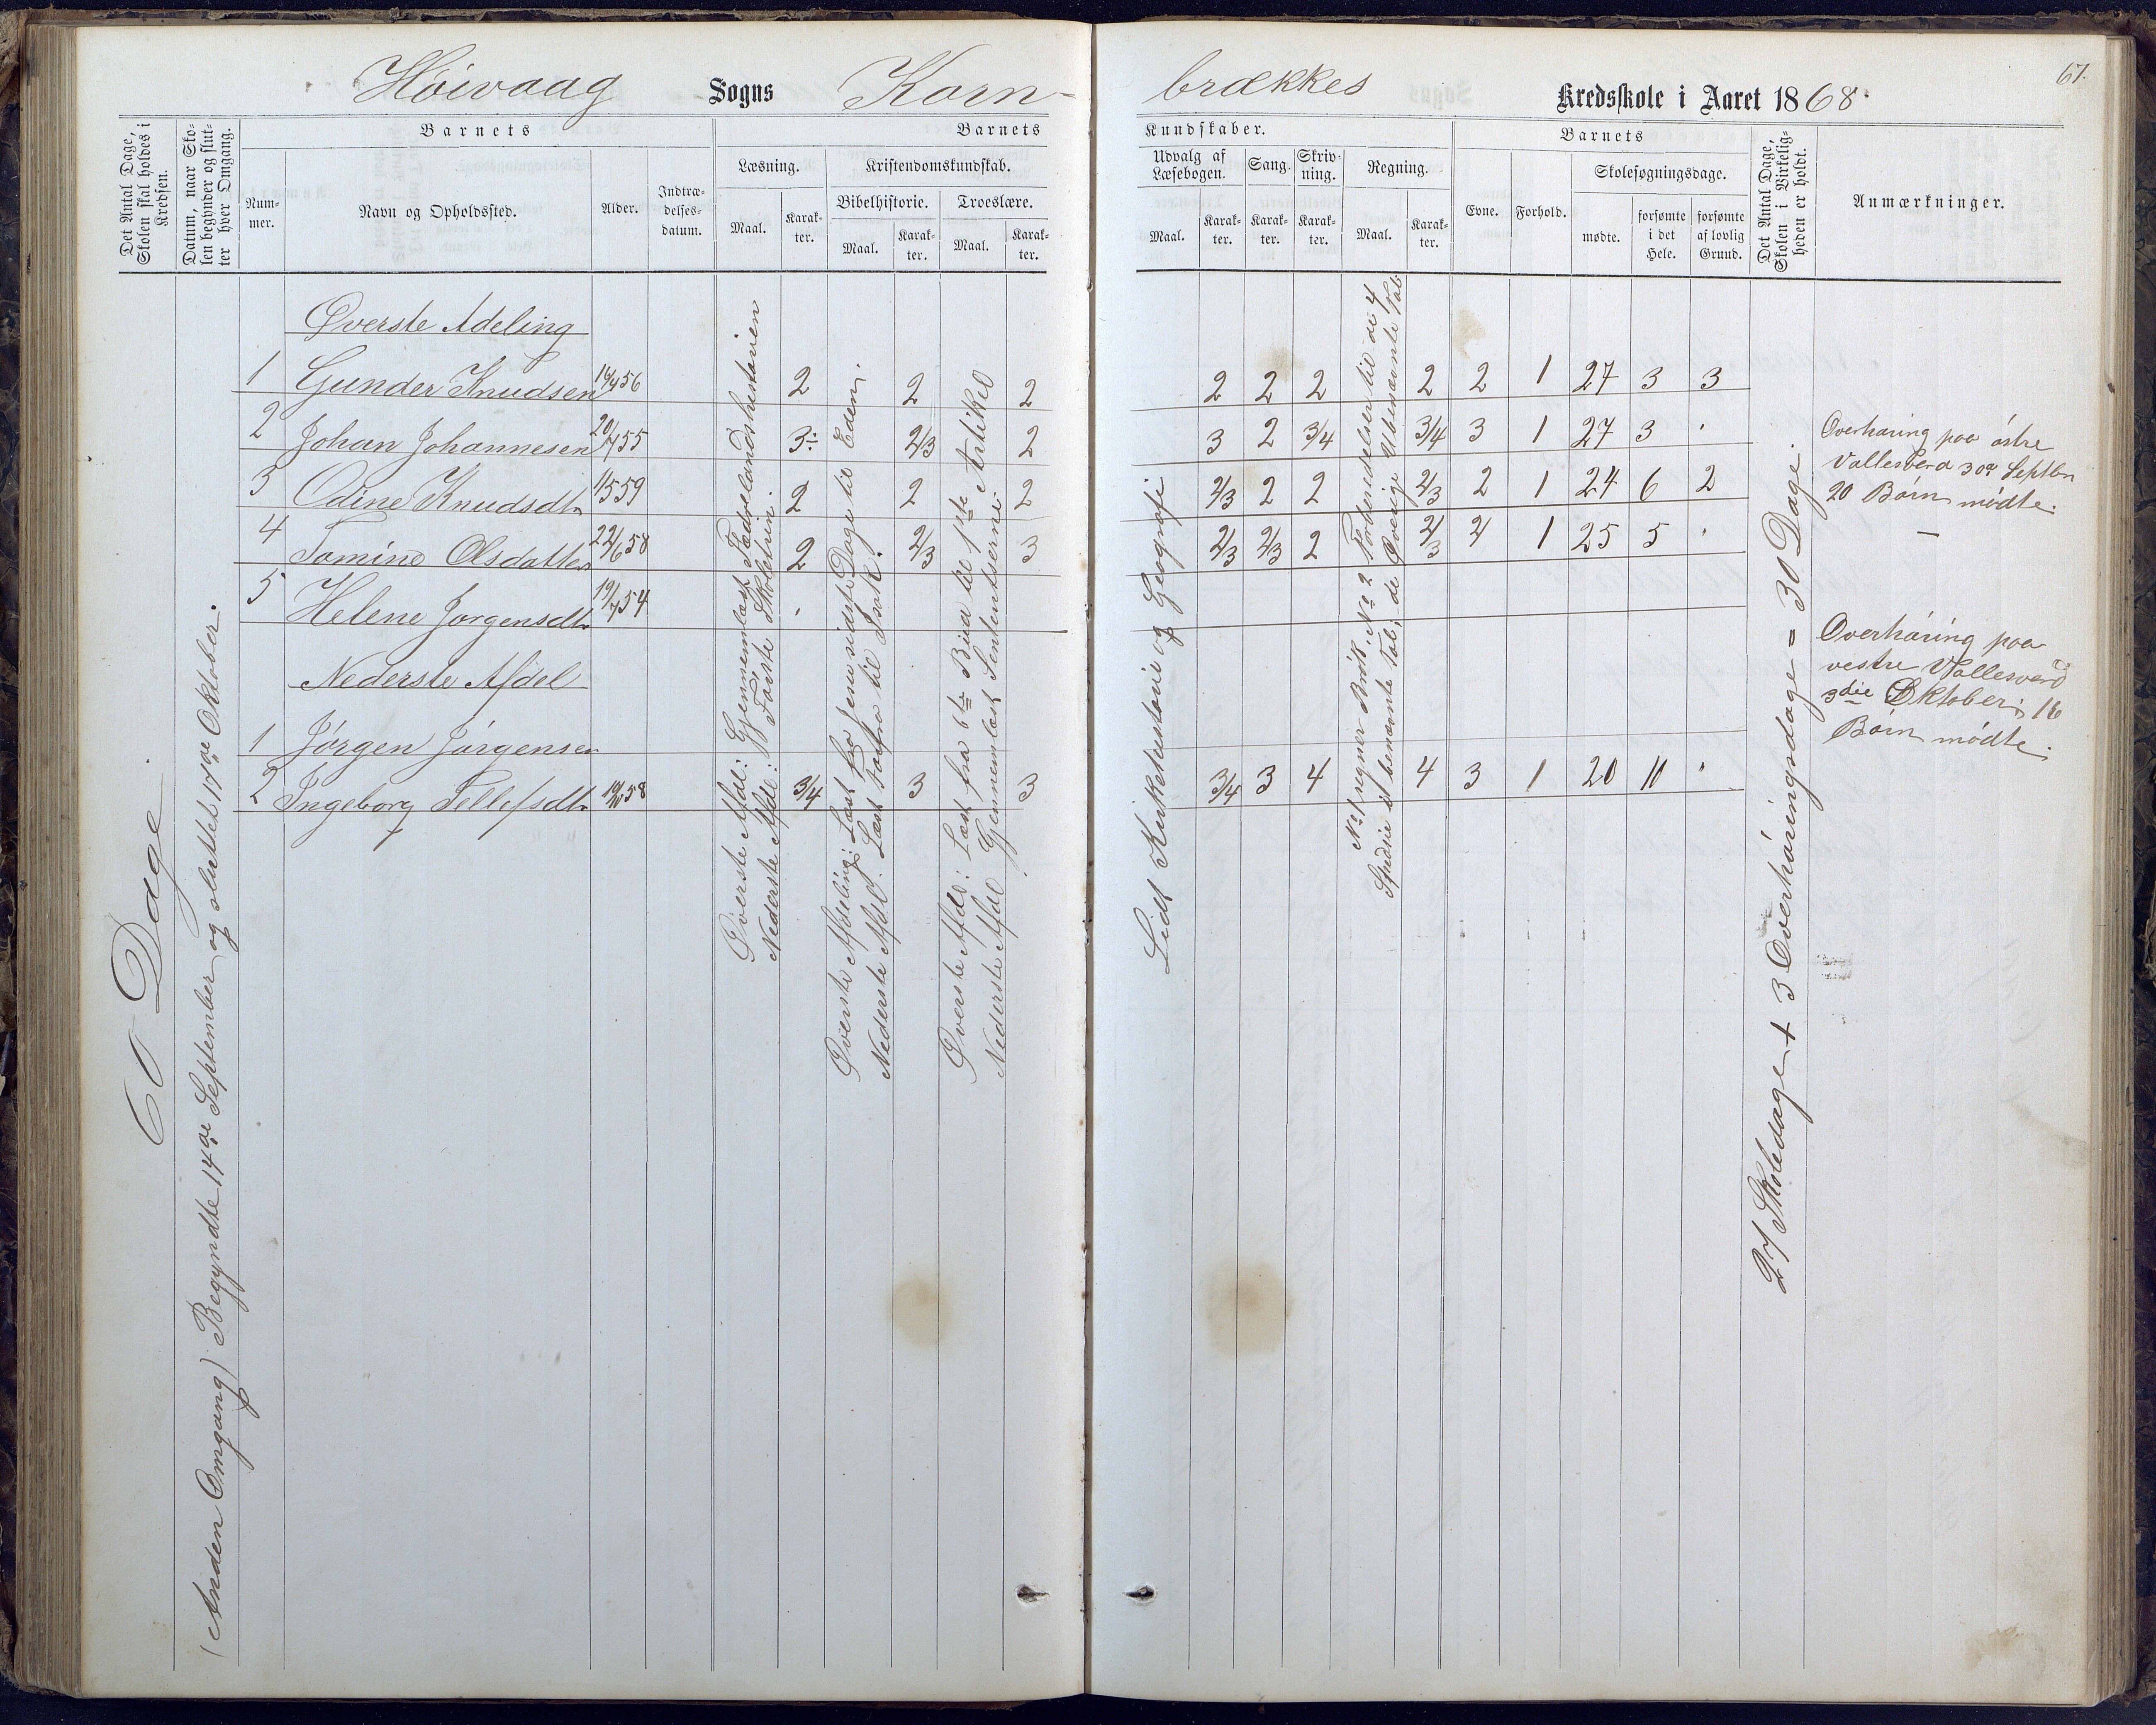 Høivaag Sogns Korn-
brækkes Kredsskole i Aaret 1868.
67.
Det Antal Dage, Skolen skal holdes i Kredsen.
Datum, naar Skolen begynder og slutter hver Omgang.
Barnets
Nummer.
Navn og Opholdssted.
Alder.
Indtrædelsesdatum.
Barnets
Læsning.
Maal.
Karakter.
Kristendomskundskab.
Bibelhistorie.
Maal.
Karakter.
Troeslære.
Maal.
Karakter.
Kundskaber.
Udvalg af Læsebogen.
Maal.
Karakter.
Sang.
Karakter.
Skrivning.
Karakter.
Regning.
Maal.
Karakter.
Barnets
Evne.
Forhold.
Skolesøgningsdage.
mødte.
forsømte i det Hele.
forsømte af lovlig Grund.
Det Antal Dage, Skolen i Virkeligheden er holdt.
Anmærkninger.
60 Dage
(Anden Omgang) Begyndte 14de September og sluttet 17de Oktober.
Øverste Adeling
1 Gunder Knudsen 56 2 2 2 2 2 2 2 2 1 27 3 3
2 Johan Johannesen 20/7 55 3 2/3 2 3 2 3/4 3/4 3 1 27 3 "
3 Odine Knudsdtr 59 2 2 2 2/3 2 2 2/3 2 1 24 6 2
4 Tomine Olsdatter 22/6 58 2 2/3 3 2/3 2/3 2 2/3 2 1 25 5 "
5 Helene Jørgensdtr 19/7 54
Nederste Afdel
1 Jørgen Jørgensen
2 Ingeborg Tellefsdtr 58 3/4 3 3 3/4 3 4 4 3 1 20 11 "
Øverste Afdl: Gjennemlæst Fædrelandshistorien
Nederste Afdl: Første Skoletrin.
Øverste Afdeling: Læst fra Jesu sidste Dage til Enden.
Nederste Afdl: Læst forfra til Isak.
Øverste Afdl: Læst fra 6te Bud til 1ste Artikel
Nederste Afdl Gjennemlæst Sententserne.
Lidt Kirkehistorie og Geografi
No 1 regner Brøk. No 2 Forberedelser til de 4
Spesie i benævnte Tal; de Øvrige Ubenævnte Tal.
27 Skoledage + 3 Overhøringsdage = 30 Dage.
Overhøring paa østre
Vallesverd 30te Septbr
20 Børn mødte.
—
Overhøring paa
vestre Vallesverd
3die Oktober; 16
Børn mødte.